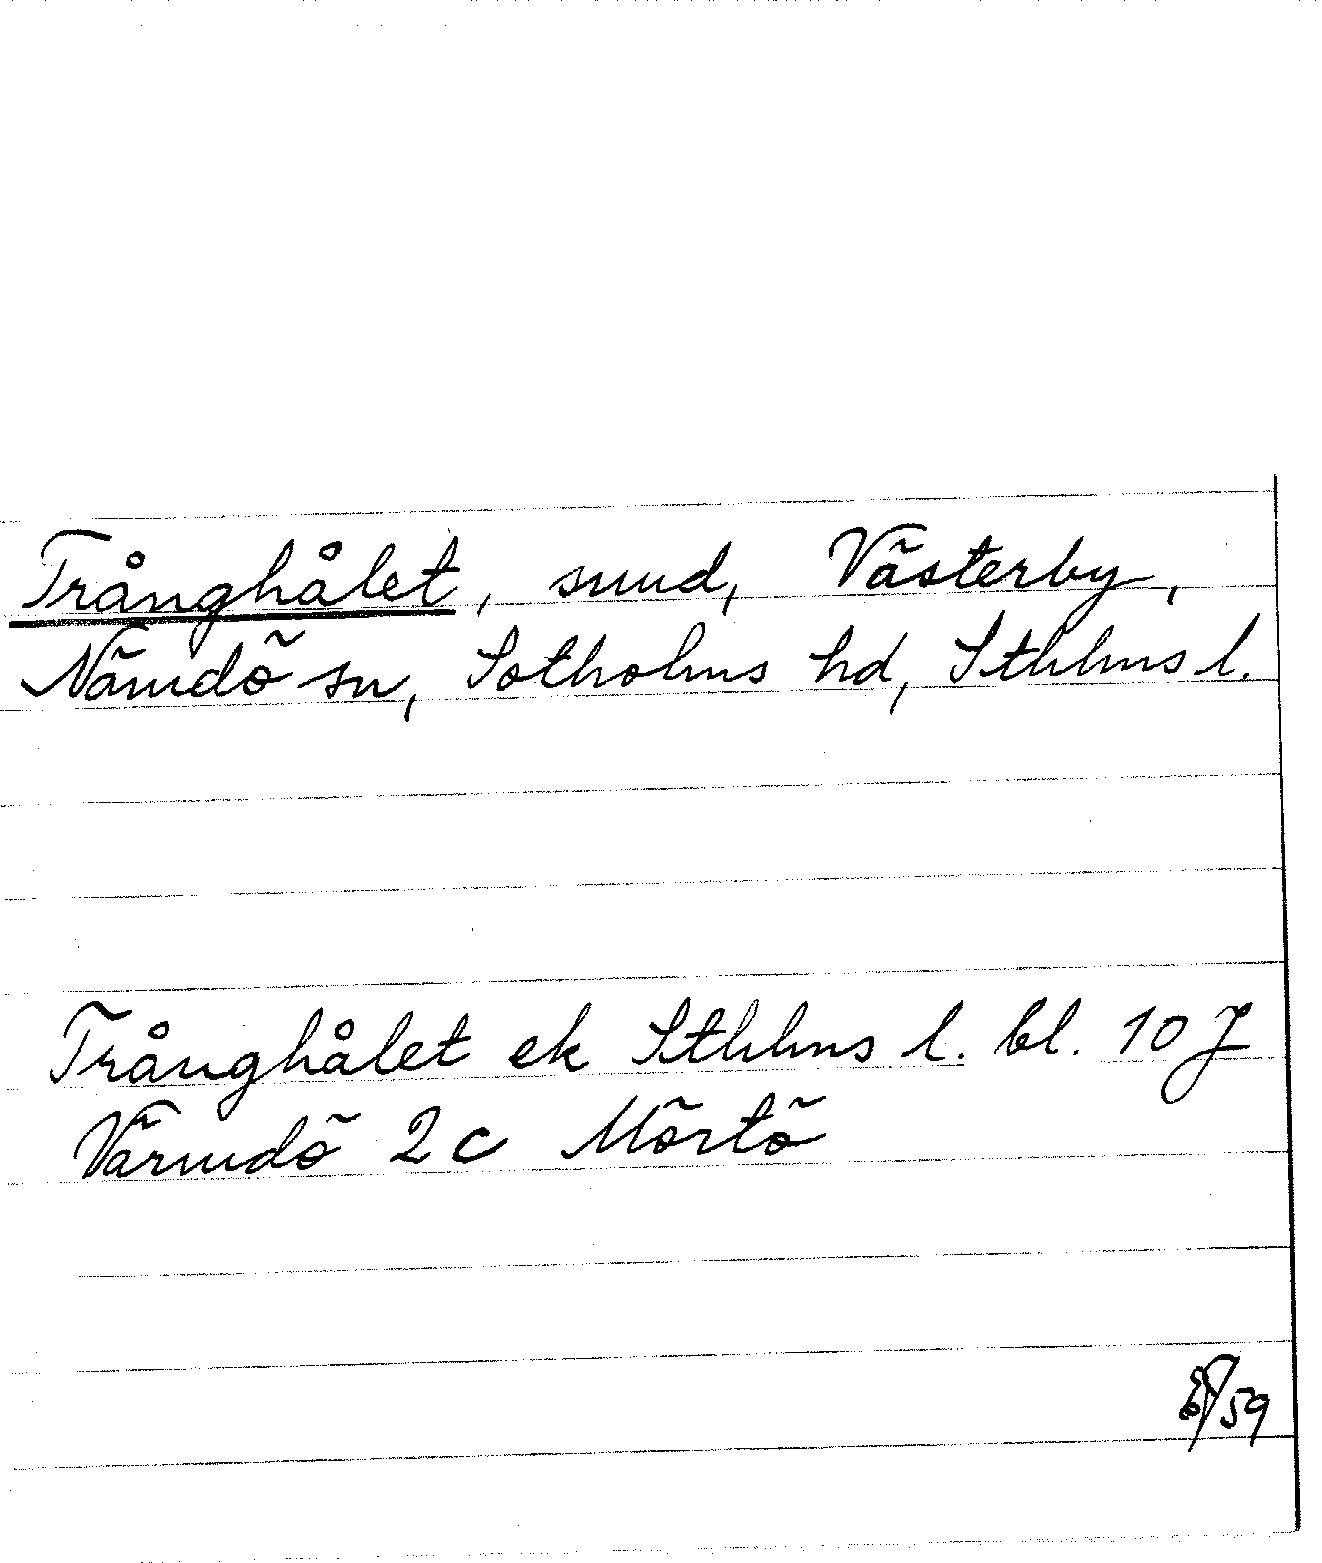 Trånghålet, sund, Västerby,
Nämdö sn, Sotholms hd, Sthlms l.
Trånghålet ek Sthlms l. bl. 10 J
Värmdö 2c Mörtö
/59